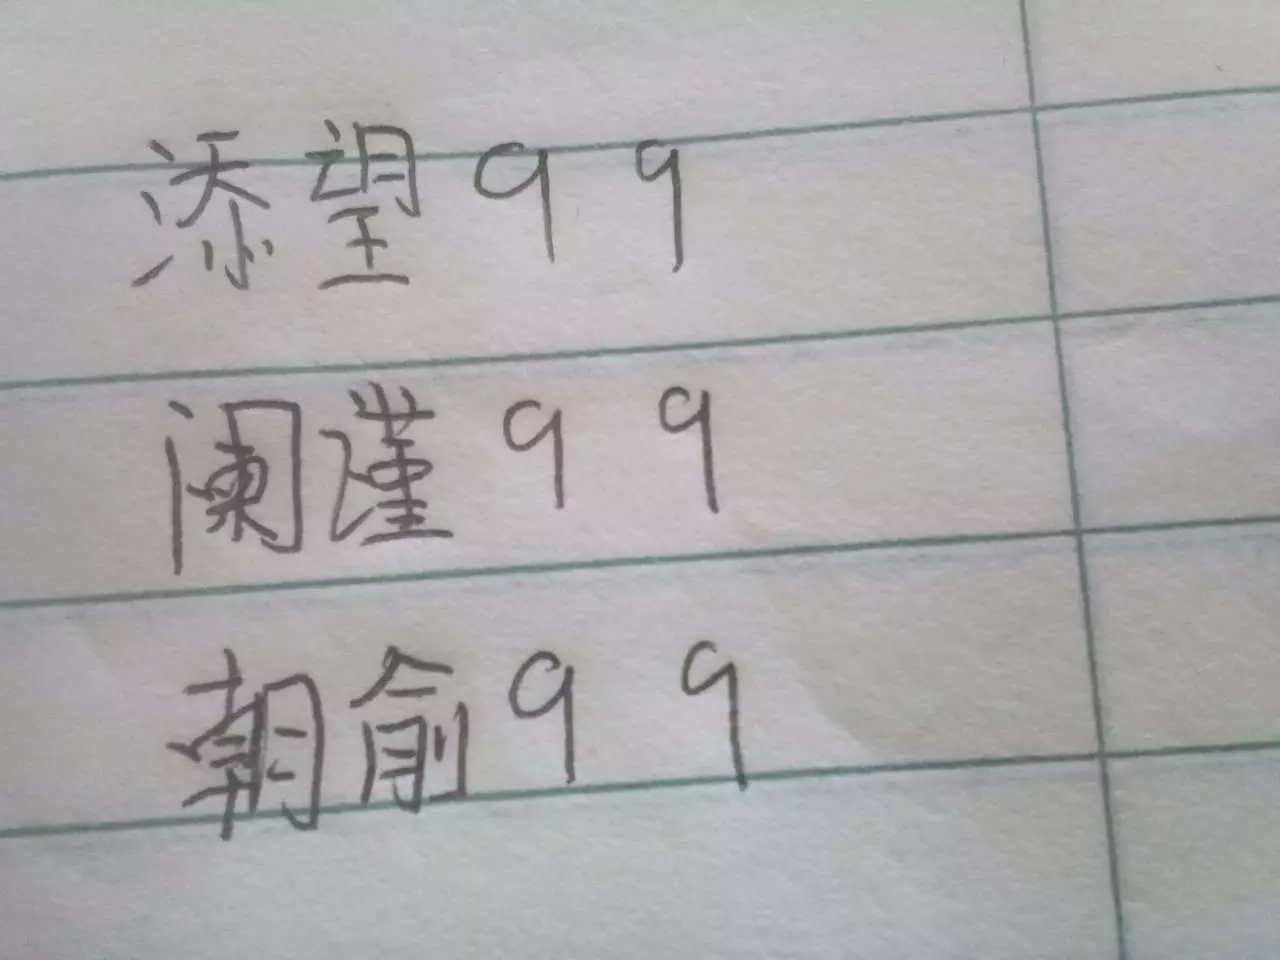 添望99
阑瑾99
朝俞99